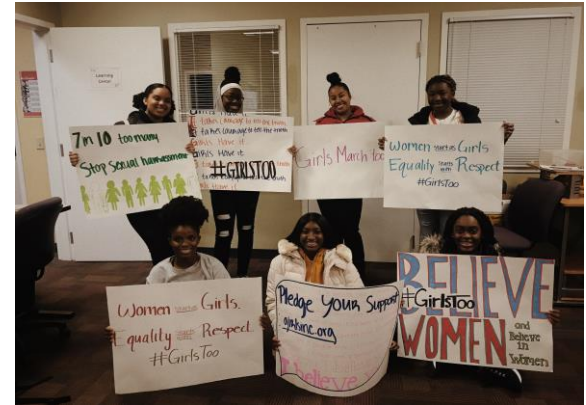 Learning
Center
7 in 10 too many
Stop sexual harassment
It takes courage to tell the truth
Girls Have it
Girls Have it
#GIRLSTOO
Have it
Girls March too
Women starts as Girls
Equality starts with Respect
#GirlsToo
Women Girls.
Equality Respect
#GirlsToo
Pledge Your Support
girlsinc.org
Believe
BELIEVE
#GirlsToo
WOMEN
and
Believe
in
Women